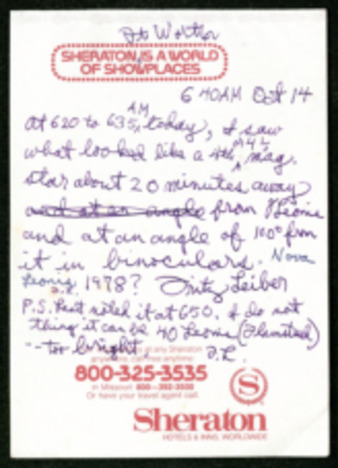 Ft Worth
SHERATON IS A WORLD
OF SHOWPLACES
6 40AM Oct 14
At 620 to 635 AM today, I saw
what looked like a 4th mag.
star about 20 minutes away
and at an angle from Leonis
and at an angle of 100° from
it in binoculars. Nova
Leonis 1978? Fritz Leiber
F.L.
P.S. Last noted it at 650. I do not
think it can be 40 Leonis (Flamsteed)
-- too bright. F.L.
at any Sheraton
anywhere, call free anytime
800-325-3535
in Missouri 800-392-3500
Or have your travel agent call.
S
Sheraton
HOTELS & INNS, WORLDWIDE